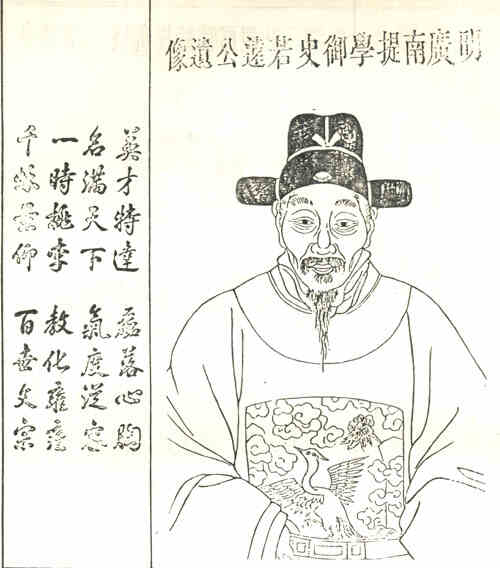 明廣南提學御史若公遺像
英才特達 磊落心胸
名滿天下 氣度從容
一時桃李 教化雍雍
千景仰 百世文宗